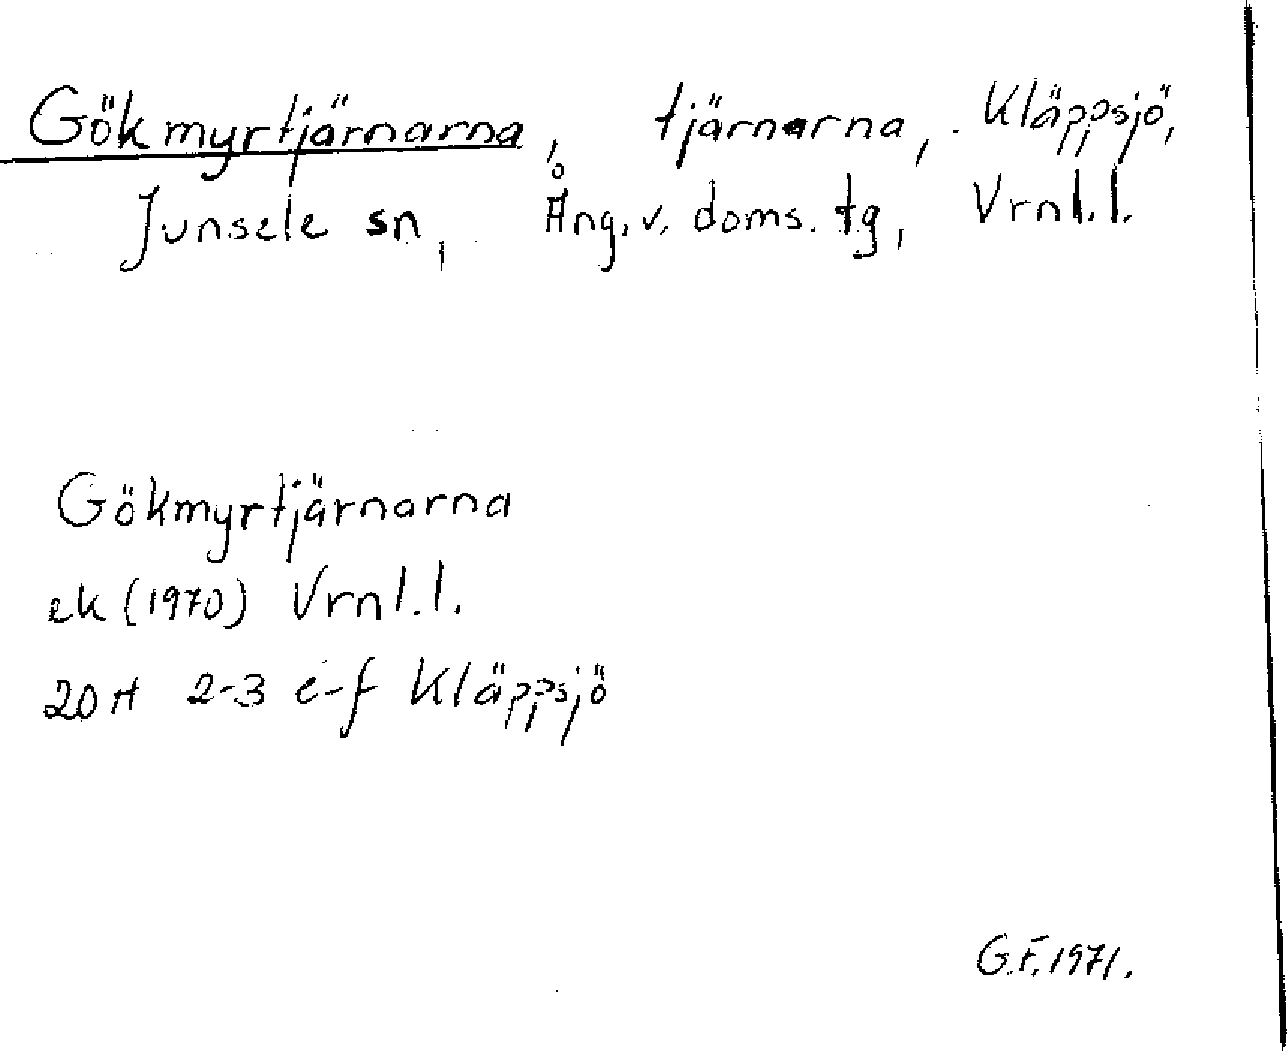 Gökmyrtjärnarna, tjärnarna, Kläppsjö,
Junsele sn, Ång. v. doms. tg, Vrnl.l.
Gökmyrtjärnarna
ek (1970) Vrnl.l.
20H 2-3 e-f Kläppsjö
G.F. 1971.